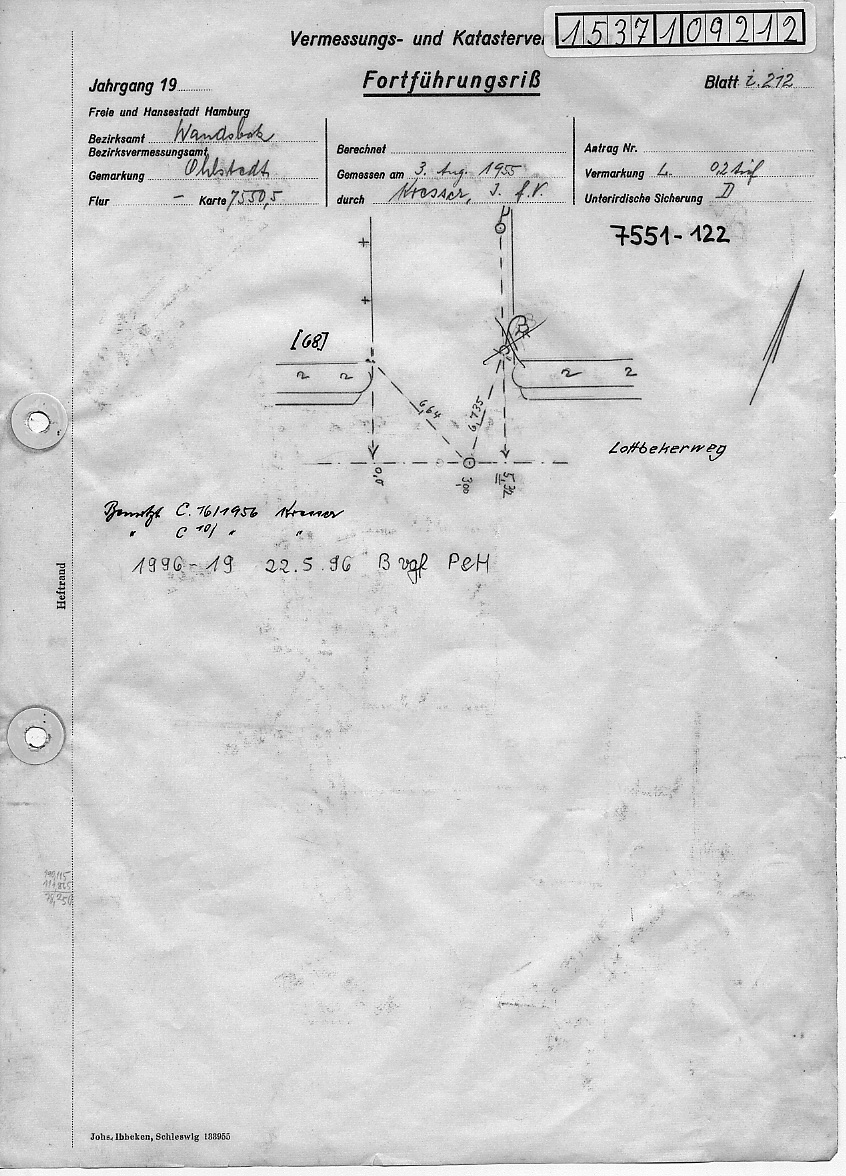 Vermessungs- und Katasterver
1537109212
Jahrgang 19
Fortführungsriß
Blatt i. 212
Freie und Hansestadt Hamburg
Bezirksamt Wandsbek
Bezirksvermessungsamt
Gemarkung Ohlstedt
Flur - Karte 7550,5
Berechnet
Gemessen am 3. Aug. 1955
durch Kresser, J. f. V.
Antrag Nr.
Vermarkung L. 0,2 tief
Unterirdische Sicherung D
7551-122
[68]
6,64
6,735
Lottbekerweg
0,0
3,00
5,32
Benutzt C. 16/1956 Kresser
" C 10/ " "
1996-19 22.5.96 B vgf PeH
Heftrand
Johs. Ibbeken, Schleswig 133955